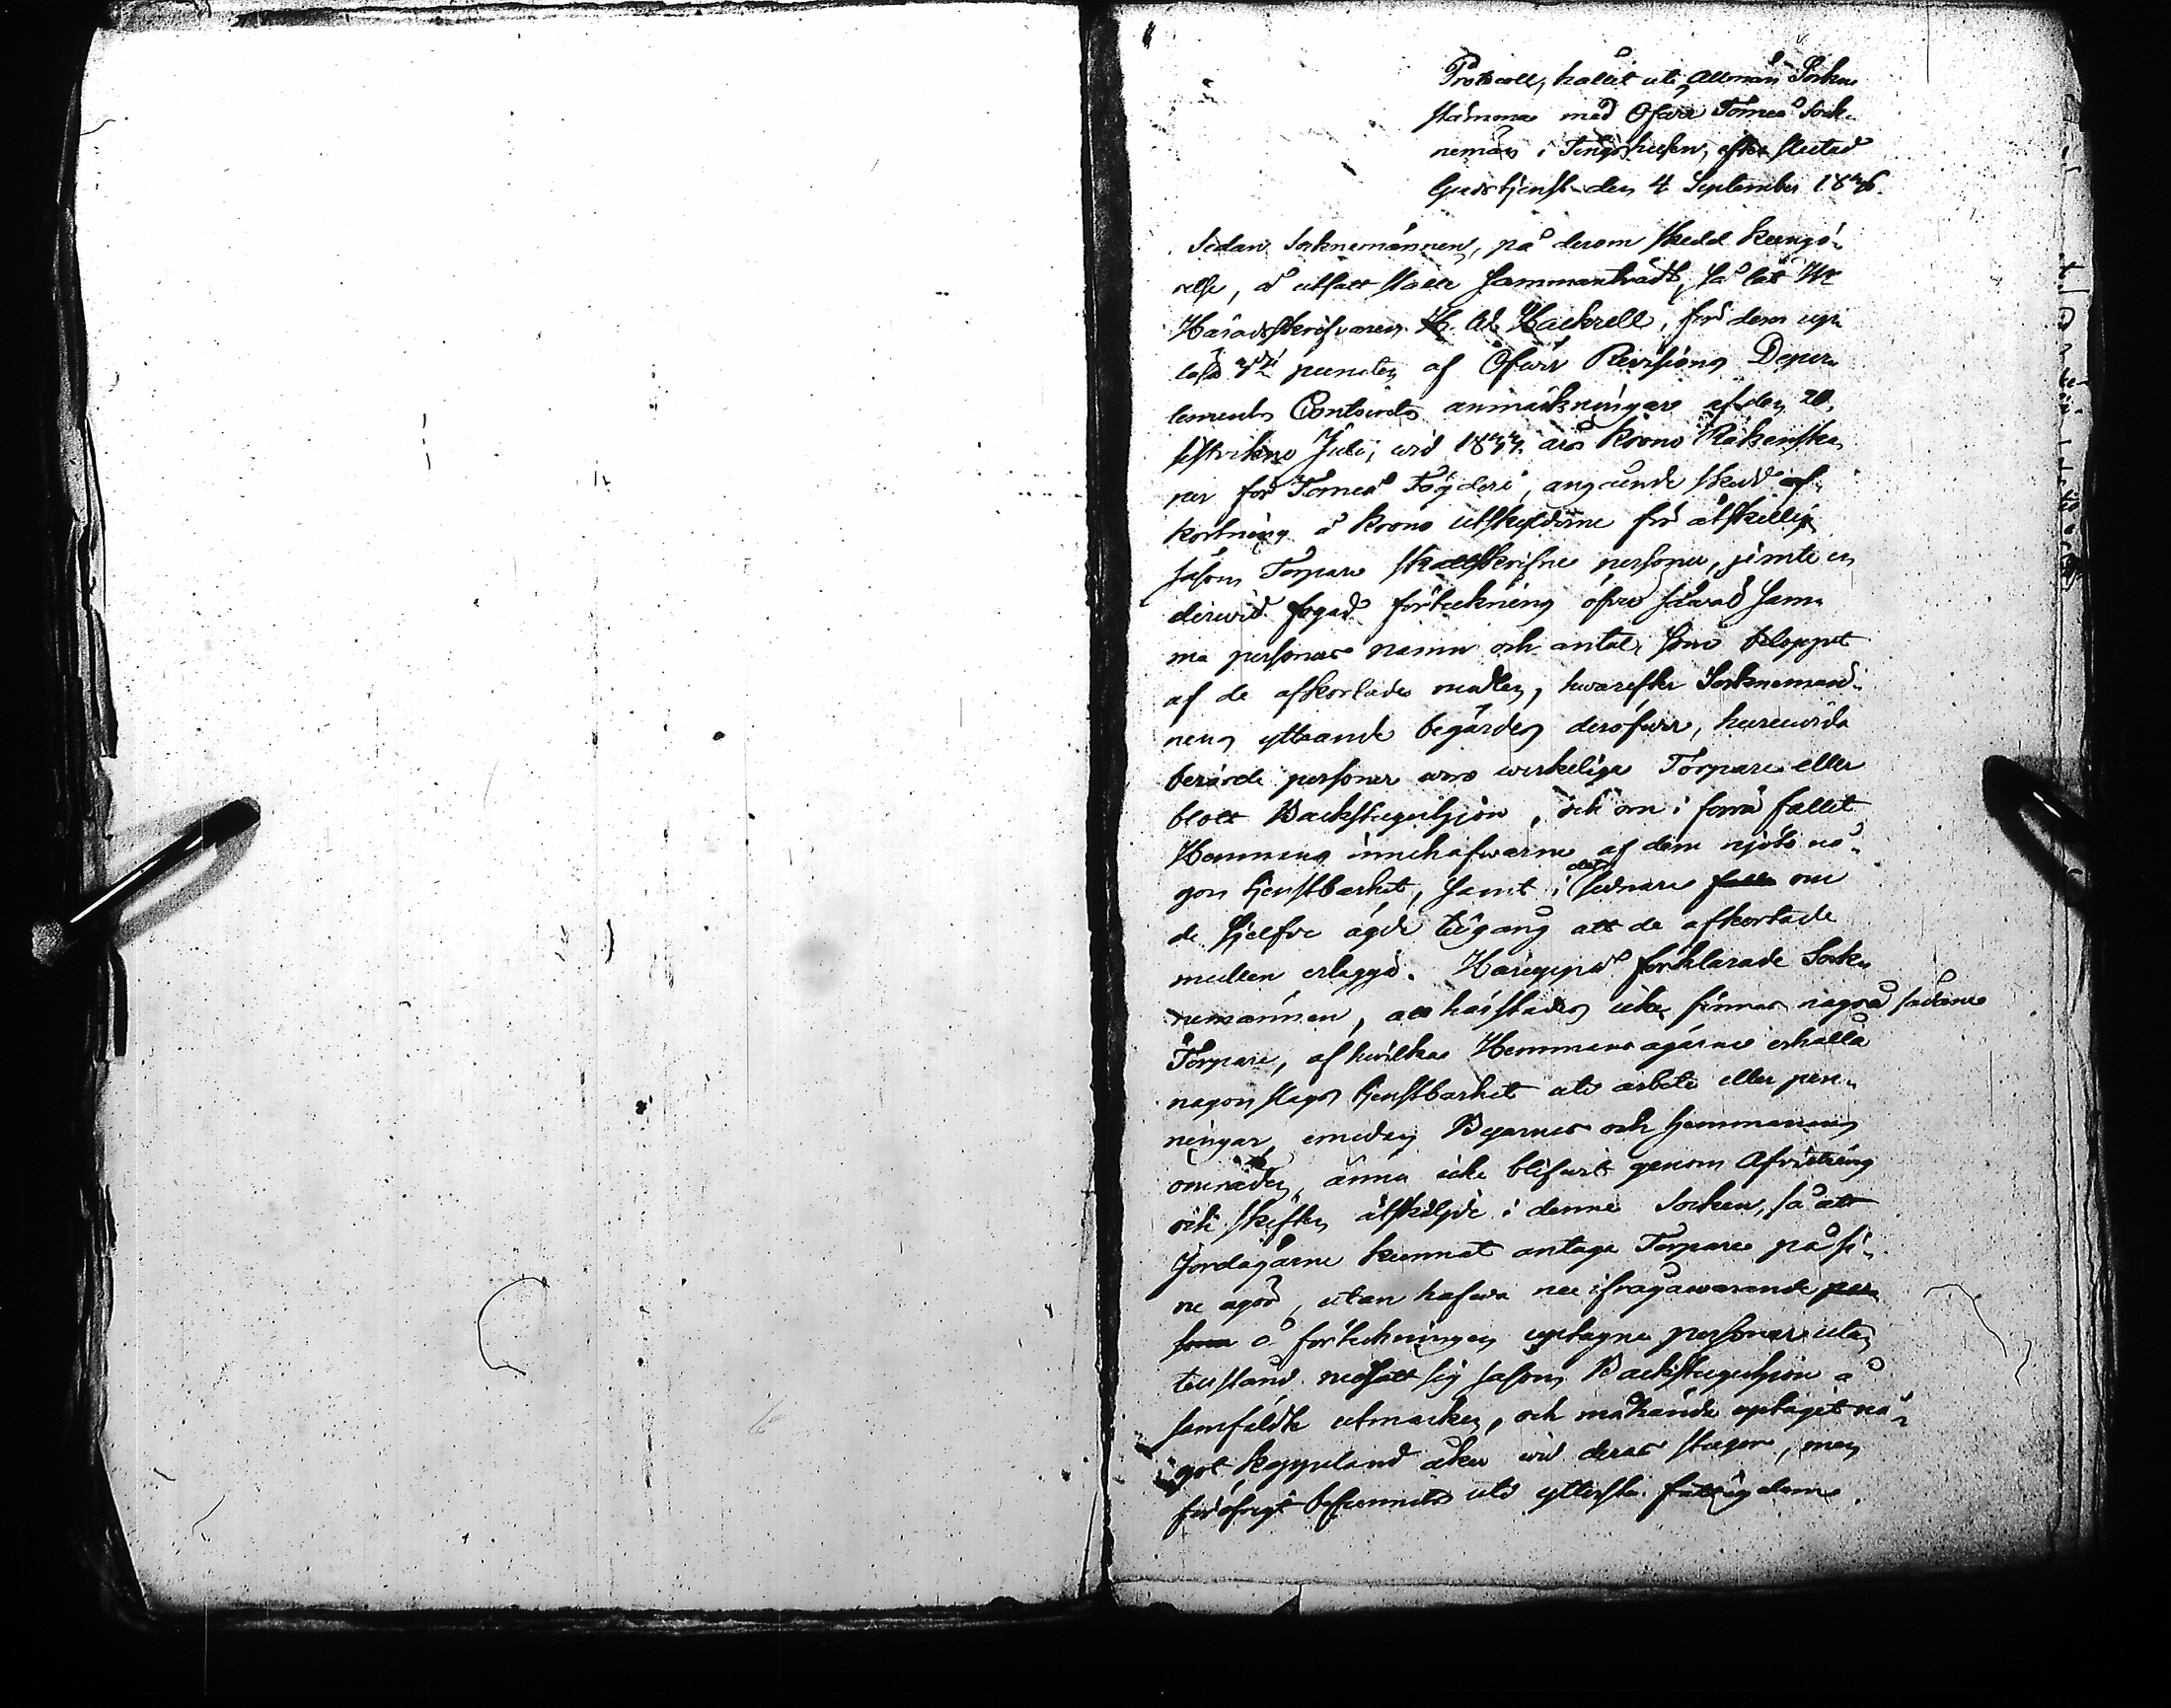 Protocoll, hållit uti Allmän Sockne
stämma med Öfver Torneå Sock-
nemän i Tingshusen, efter slutad
Gudstjenst den 4 September 1836.
Sedan Socknemännen, på derom skedd kungö-
relse, å utsatt ställe sammanträdt, så lät
Häradsskrifvaren H. Ad. Hackzell, för dem upp
läsa punkten af Öfver Revisions Depar-
tements Contoirets anmärkningar af den 20.
sistvikne Juli, wid 1833 års Krono Räkenska
per för Torneå Fögderi, angående skedd af-
kortning å Krono utskylderne för åtskillige
såsom Torpare skattskrifne personer, jemte en
derwid fogad förteckning öfver såwäl sam-
ma personers namn och antal, som beloppet
af de afkortade medlen, hwarefter Socknemän-
nens yttrande begärdes deröfwer, huruwida
berörde personer woro werkelige Torpare eller
blott Backstuguhjon, och om i förra fallet
Hemmans innehafwarne af dem njöto nå-
gon tjenstbarhet, samt i det sednare om
de sjelfve ägde tilgång att de afkortade
medlen erlägga. Häruppå förklarade Sock-
nemännen, att härstädes icke finnas några sådane
Torpare, af hwilka Hemmans ägarne erhålla
någon slags tjenstbarhet uti arbete eller pen-
ningar, emedan Byarnes och hemmanens
områden, ännu icke blifwit genom Afwittring
och skiften åtskiljde i denne Socken, så att
Jordägarne kunnat antaga Torpare på si-
ne ägor, utan hafwa nu ifrågawarande per
soner å förteckningen uptagne personer utan
tilstånd nedsatt sig såsom Backstuguhjon å
samfäldte utmarken, och måhända uptagit nå-
got kappeland åker wid deras stugor, men
föröfrigt befunnits uti yttersta fattigdom.